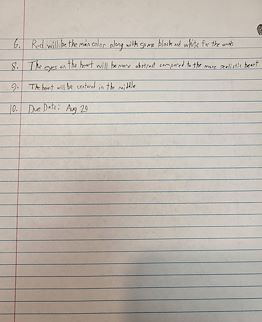 6. Red will be the main color along with some black and white for the
8. The eyes on the heart will be more abstract compared to the more realistic heart
9. The heart will be centered in the middle
10. Due Date: Aug 29